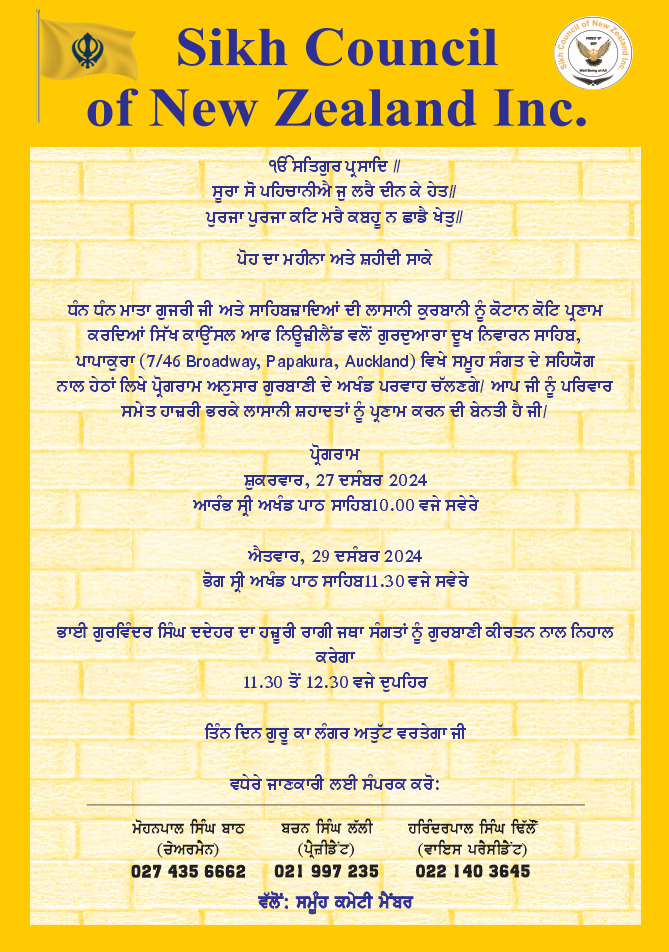 Sikh Council
of New Zealand Inc.
Sikh Council of New Zealand Inc.
Well Being of All
ੴ ਸਤਿਗੁਰ ਪ੍ਰਸਾਦਿ ॥
ਸੂਰਾ ਸੋ ਪਹਿਚਾਨੀਐ ਜੁ ਲਰੈ ਦੀਨ ਕੇ ਹੇਤ॥
ਪੁਰਜਾ ਪੁਰਜਾ ਕਟਿ ਮਰੈ ਕਬਹੂ ਨ ਛਾਡੈ ਖੇਤੁ॥
ਪੋਹ ਦਾ ਮਹੀਨਾ ਅਤੇ ਸ਼ਹੀਦੀ ਸਾਕੇ
ਧੰਨ ਧੰਨ ਮਾਤਾ ਗੁਜਰੀ ਜੀ ਅਤੇ ਸਾਹਿਬਜ਼ਾਦਿਆਂ ਦੀ ਲਾਸਾਨੀ ਕੁਰਬਾਨੀ ਨੂੰ ਕੋਟਾਨ ਕੋਟਿ ਪ੍ਰਣਾਮ
ਕਰਦਿਆਂ ਸਿੱਖ ਕਾਉਂਸਲ ਆਫ ਨਿਊਜ਼ੀਲੈਂਡ ਵਲੋਂ ਗੁਰਦੁਆਰਾ ਦੂਖ ਨਿਵਾਰਨ ਸਾਹਿਬ,
ਪਾਪਾਕੁਰਾ (7/46 Broadway, Papakura, Auckland) ਵਿਖੇ ਸਮੂਹ ਸੰਗਤ ਦੇ ਸਹਿਯੋਗ
ਨਾਲ ਹੇਠਾਂ ਲਿਖੇ ਪ੍ਰੋਗਰਾਮ ਅਨੁਸਾਰ ਗੁਰਬਾਣੀ ਦੇ ਅਖੰਡ ਪਰਵਾਹ ਚੱਲਣਗੇ। ਆਪ ਜੀ ਨੂੰ ਪਰਿਵਾਰ
ਸਮੇਤ ਹਾਜ਼ਰੀ ਭਰਕੇ ਲਾਸਾਨੀ ਸ਼ਹਾਦਤਾਂ ਨੂੰ ਪ੍ਰਣਾਮ ਕਰਨ ਦੀ ਬੇਨਤੀ ਹੈ ਜੀ।
ਪ੍ਰੋਗਰਾਮ
ਸ਼ੁਕਰਵਾਰ, 27 ਦਸੰਬਰ 2024
ਆਰੰਭ ਸ੍ਰੀ ਅਖੰਡ ਪਾਠ ਸਾਹਿਬ10.00 ਵਜੇ ਸਵੇਰੇ
ਐਤਵਾਰ, 29 ਦਸੰਬਰ 2024
ਭੋਗ ਸ੍ਰੀ ਅਖੰਡ ਪਾਠ ਸਾਹਿਬ11.30 ਵਜੇ ਸਵੇਰੇ
ਭਾਈ ਗੁਰਵਿੰਦਰ ਸਿੰਘ ਦਦੇਹਰ ਦਾ ਹਜ਼ੂਰੀ ਰਾਗੀ ਜਥਾ ਸੰਗਤਾਂ ਨੂੰ ਗੁਰਬਾਣੀ ਕੀਰਤਨ ਨਾਲ ਨਿਹਾਲ
ਕਰੇਗਾ
11.30 ਤੋਂ 12.30 ਵਜੇ ਦੁਪਹਿਰ
ਤਿੰਨ ਦਿਨ ਗੁਰੂ ਕਾ ਲੰਗਰ ਅਤੁੱਟ ਵਰਤੇਗਾ ਜੀ
ਵਧੇਰੇ ਜਾਣਕਾਰੀ ਲਈ ਸੰਪਰਕ ਕਰੋ:
ਮੋਹਨਪਾਲ ਸਿੰਘ ਬਾਠ ਬਚਨ ਸਿੰਘ ਲੱਲੀ ਹਰਿੰਦਰਪਾਲ ਸਿੰਘ ਢਿੱਲੋਂ
(ਚੇਅਰਮੈਨ) (ਪ੍ਰੈਜ਼ੀਡੈਂਟ) (ਵਾਇਸ ਪਰੈਸੀਡੈਂਟ)
027 435 6662 021 997 235 022 140 3645
ਵੱਲੋਂ: ਸਮੂੰਹ ਕਮੇਟੀ ਮੈਂਬਰ